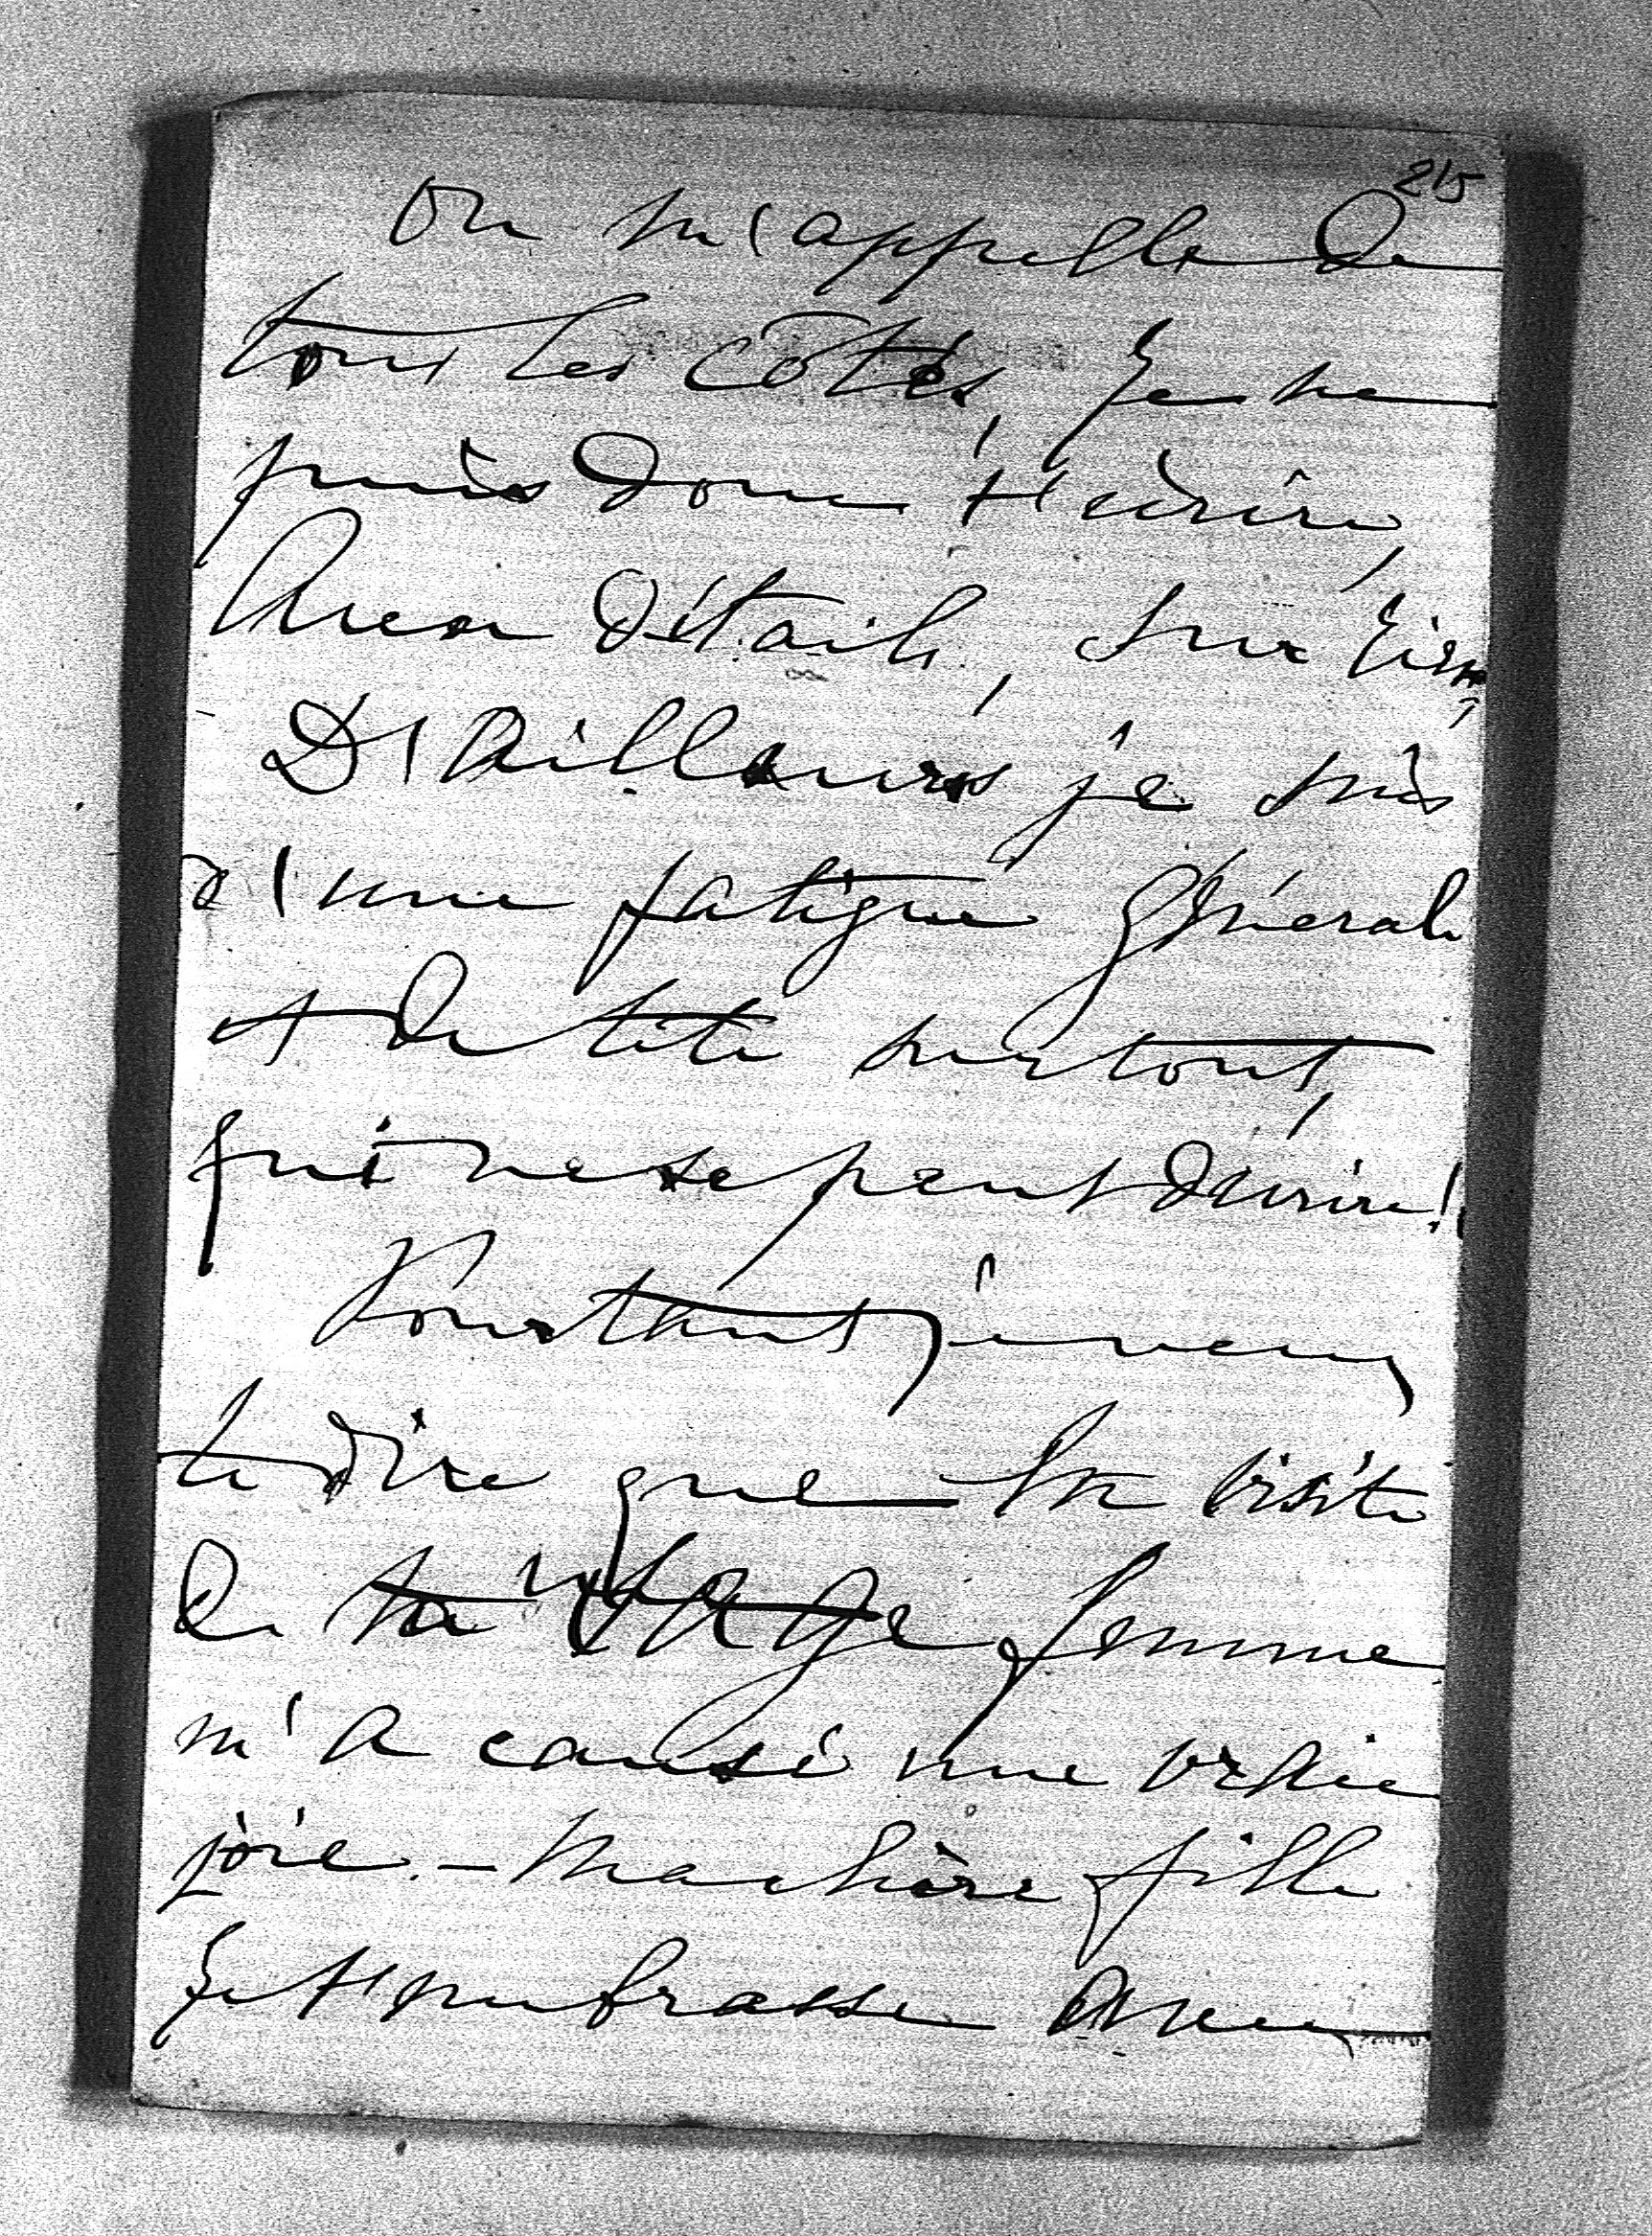 215
On m'appelle de
tous les côtés, Je ne
puis donc t'écrire,
Avec détails, sur rien,
D'Ailleurs je suis
d'une fatigue générale
et de tête surtout,
qui ne se peut décrire!
Pourtant, je veux
te dire que la visite
de ta femme
m'a causé une vraie
joie. - Ma chère fille
Je t'embrasse Avec